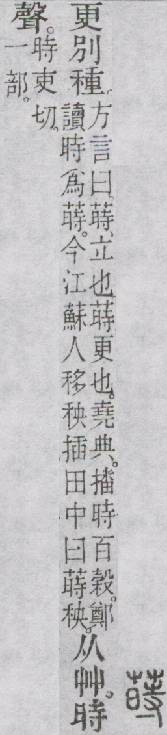 蒔
更別種。
方言曰。蒔、立也。蒔、更也。堯典。播時百穀。鄭
讀時爲蒔。今江蘇人移秧插田中曰蒔秧。
从艸。時
聲。
時吏切。
一部。